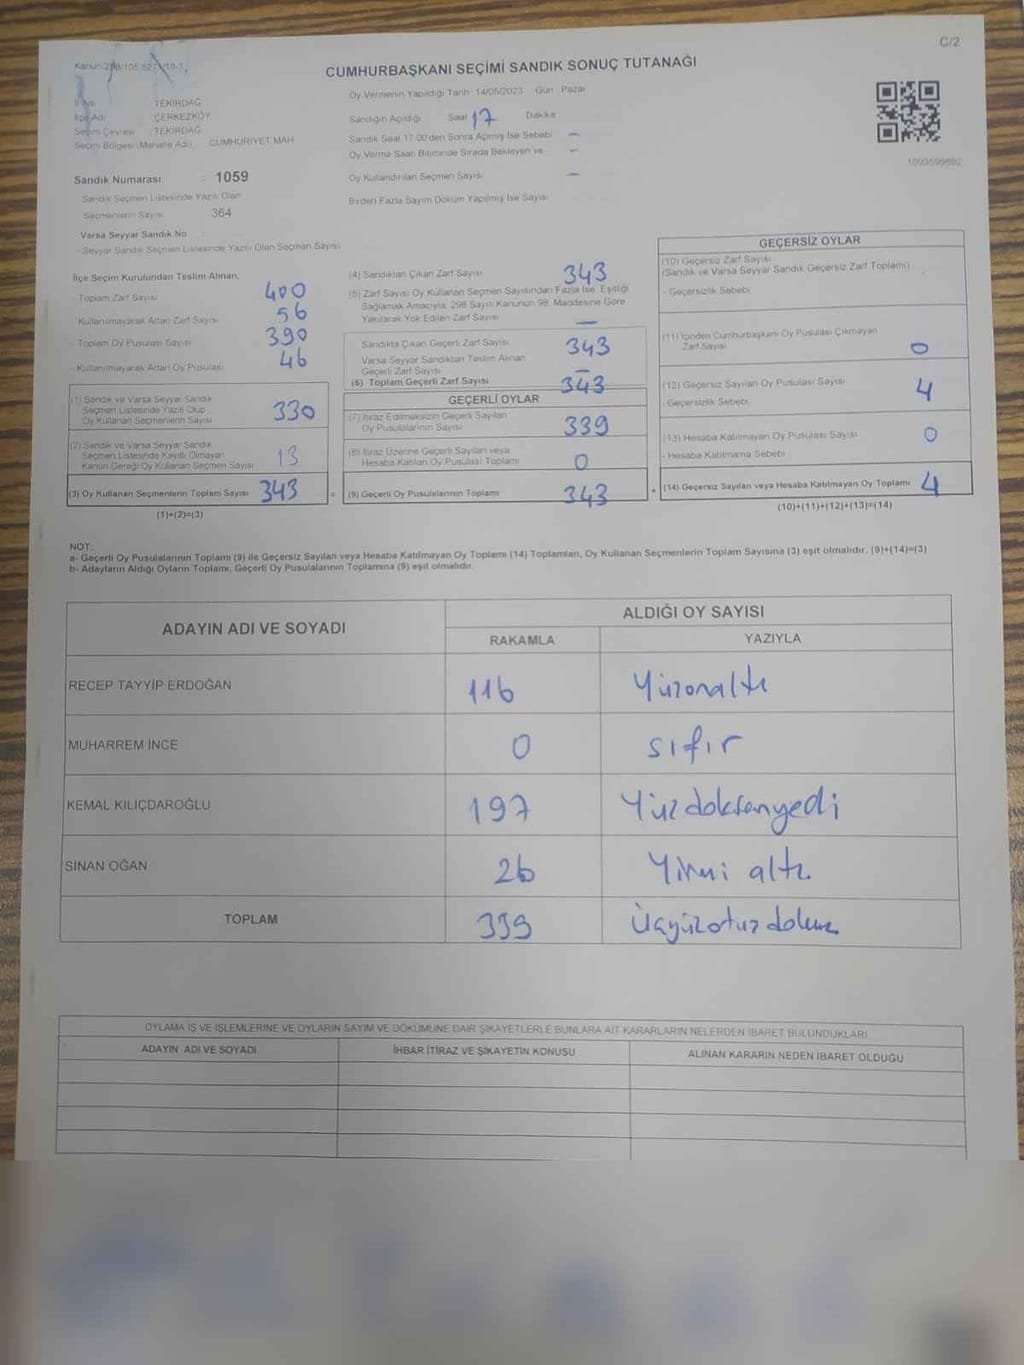 C/2
CUMHURBAŞKANI SEÇİMİ SANDIK SONUÇ TUTANAĞI
Oy Vermenin Yapıldığı Tarih : 14/05/2023 Gün : Pazar
İl Adı : TEKİRDAĞ
İlçe Adı : ÇERKEZKÖY
Seçim Çevresi : TEKİRDAĞ
Seçim Bölgesi (Mahalle Adı) : CUMHURİYET MAH
Sandığın Açıldığı Saat 17 Dakika
Sandık Saat 17:00'den Sonra Açılmış İse Sebebi —
Oy Verme Saati Bitiminde Sırada Bekleyen ve —
Oy Kullandırılan Seçmen Sayısı —
Birden Fazla Sayım Döküm Yapılmış İse Sayısı
1099599892
Sandık Numarası : 1059
Sandık Seçmen Listesinde Yazılı Olan
Seçmenlerin Sayısı : 364
Varsa Seyyar Sandık No
- Seyyar Sandık Seçmen Listesinde Yazılı Olan Seçmen Sayısı
İlçe Seçim Kurulundan Teslim Alınan;
- Toplam Zarf Sayısı 400
- Kullanılmayarak Artan Zarf Sayısı 56
- Toplam Oy Pusulası Sayısı 390
- Kullanılmayarak Artan Oy Pusulası 46
(1) Sandık ve Varsa Seyyar Sandık
Seçmen Listesinde Yazılı Olup
Oy Kullanan Seçmenlerin Sayısı 330
(2) Sandık ve Varsa Seyyar Sandık
Seçmen Listesinde Kayıtlı Olmayan
Kanun Gereği Oy Kullanan Seçmen Sayısı 13
(3) Oy Kullanan Seçmenlerin Toplam Sayısı 343 =
(1)+(2)=(3)
(4) Sandıktan Çıkan Zarf Sayısı 343
(5) Zarf Sayısı Oy Kullanan Seçmen Sayısından Fazla İse, Eşitliği
Sağlamak Amacıyla, 298 Sayılı Kanunun 98. Maddesine Göre
Yakılarak Yok Edilen Zarf Sayısı —
Sandıkta Çıkan Geçerli Zarf Sayısı 343
Varsa Seyyar Sandıktan Teslim Alınan
Geçerli Zarf Sayısı —
(6) Toplam Geçerli Zarf Sayısı 343
GEÇERLİ OYLAR
(7) İtiraz Edilmeksizin Geçerli Sayılan
Oy Pusulalarının Sayısı 339
(8) İtiraz Üzerine Geçerli Sayılan veya
Hesaba Katılan Oy Pusulası Toplamı 0
(9) Geçerli Oy Pusulalarının Toplamı 343 +
GEÇERSİZ OYLAR
(10) Geçersiz Zarf Sayısı
(Sandık ve Varsa Seyyar Sandık Geçersiz Zarf Toplamı)
- Geçersizlik Sebebi
(11) İçinden Cumhurbaşkanı Oy Pusulası Çıkmayan
Zarf Sayısı 0
(12) Geçersiz Sayılan Oy Pusulası Sayısı 4
- Geçersizlik Sebebi
(13) Hesaba Katılmayan Oy Pusulası Sayısı 0
- Hesaba Katılmama Sebebi
(14) Geçersiz Sayılan veya Hesaba Katılmayan Oy Toplamı 4
(10)+(11)+(12)+(13)=(14)
NOT:
a- Geçerli Oy Pusulalarının Toplamı (9) ile Geçersiz Sayılan veya Hesaba Katılmayan Oy Toplamı (14) Toplamları, Oy Kullanan Seçmenlerin Toplam Sayısına (3) eşit olmalıdır. (9)+(14)=(3)
b- Adayların Aldığı Oyların Toplamı, Geçerli Oy Pusulalarının Toplamına (9) eşit olmalıdır.
ADAYIN ADI VE SOYADI ALDIĞI OY SAYISI
RAKAMLA YAZIYLA
RECEP TAYYİP ERDOĞAN 116 Yüzonaltı
MUHARREM İNCE 0 sıfır
KEMAL KILIÇDAROĞLU 197 Yüzdoksanyedi
SİNAN OĞAN 26 Yirmi altı
TOPLAM 339 Üçyüzotuz
OYLAMA İŞ VE İŞLEMLERİNE VE OYLARIN SAYIM VE DÖKÜMÜNE DAİR ŞİKAYETLERLE BUNLARA AİT KARARLARIN NELERDEN İBARET BULUNDUKLARI
ADAYIN ADI VE SOYADI İHBAR İTİRAZ VE ŞİKAYETİN KONUSU ALINAN KARARIN NEDEN İBARET OLDUĞU